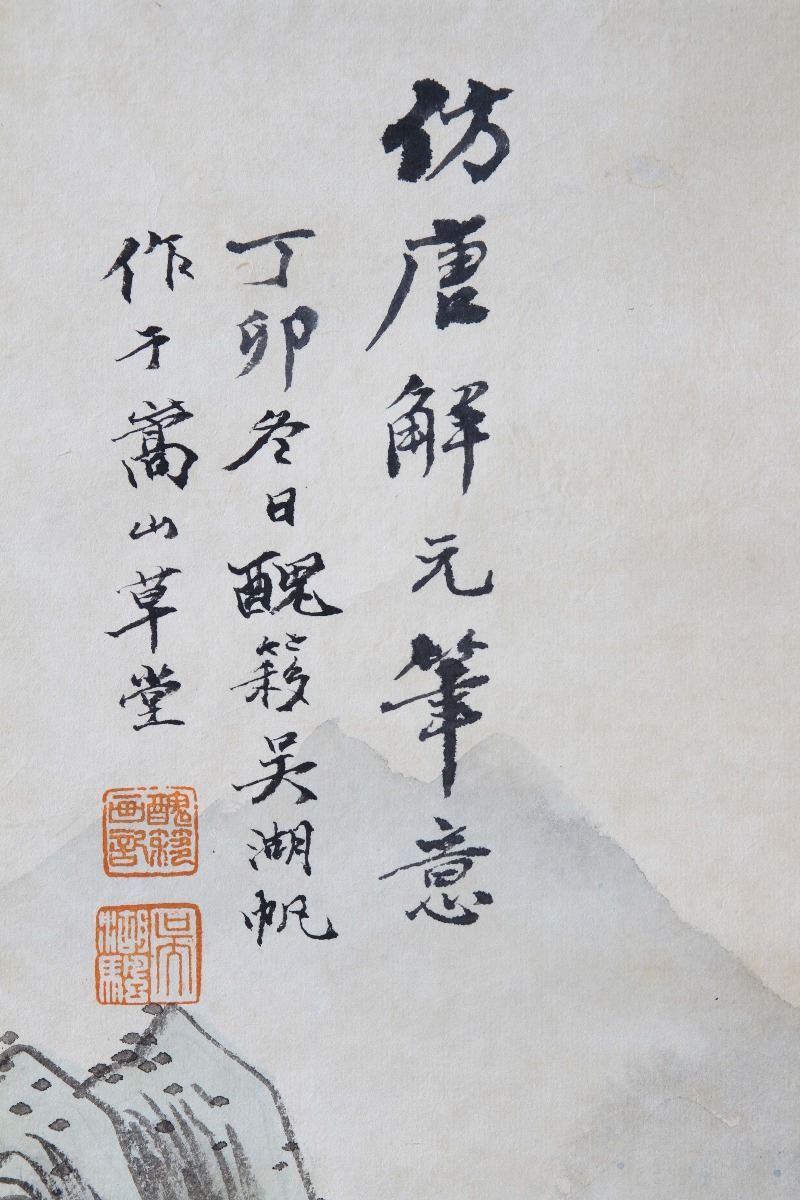 仿唐解元筆意
丁卯冬日醜簃吴湖帆
作于嵩山草堂
醜簃画記
吳湖颿